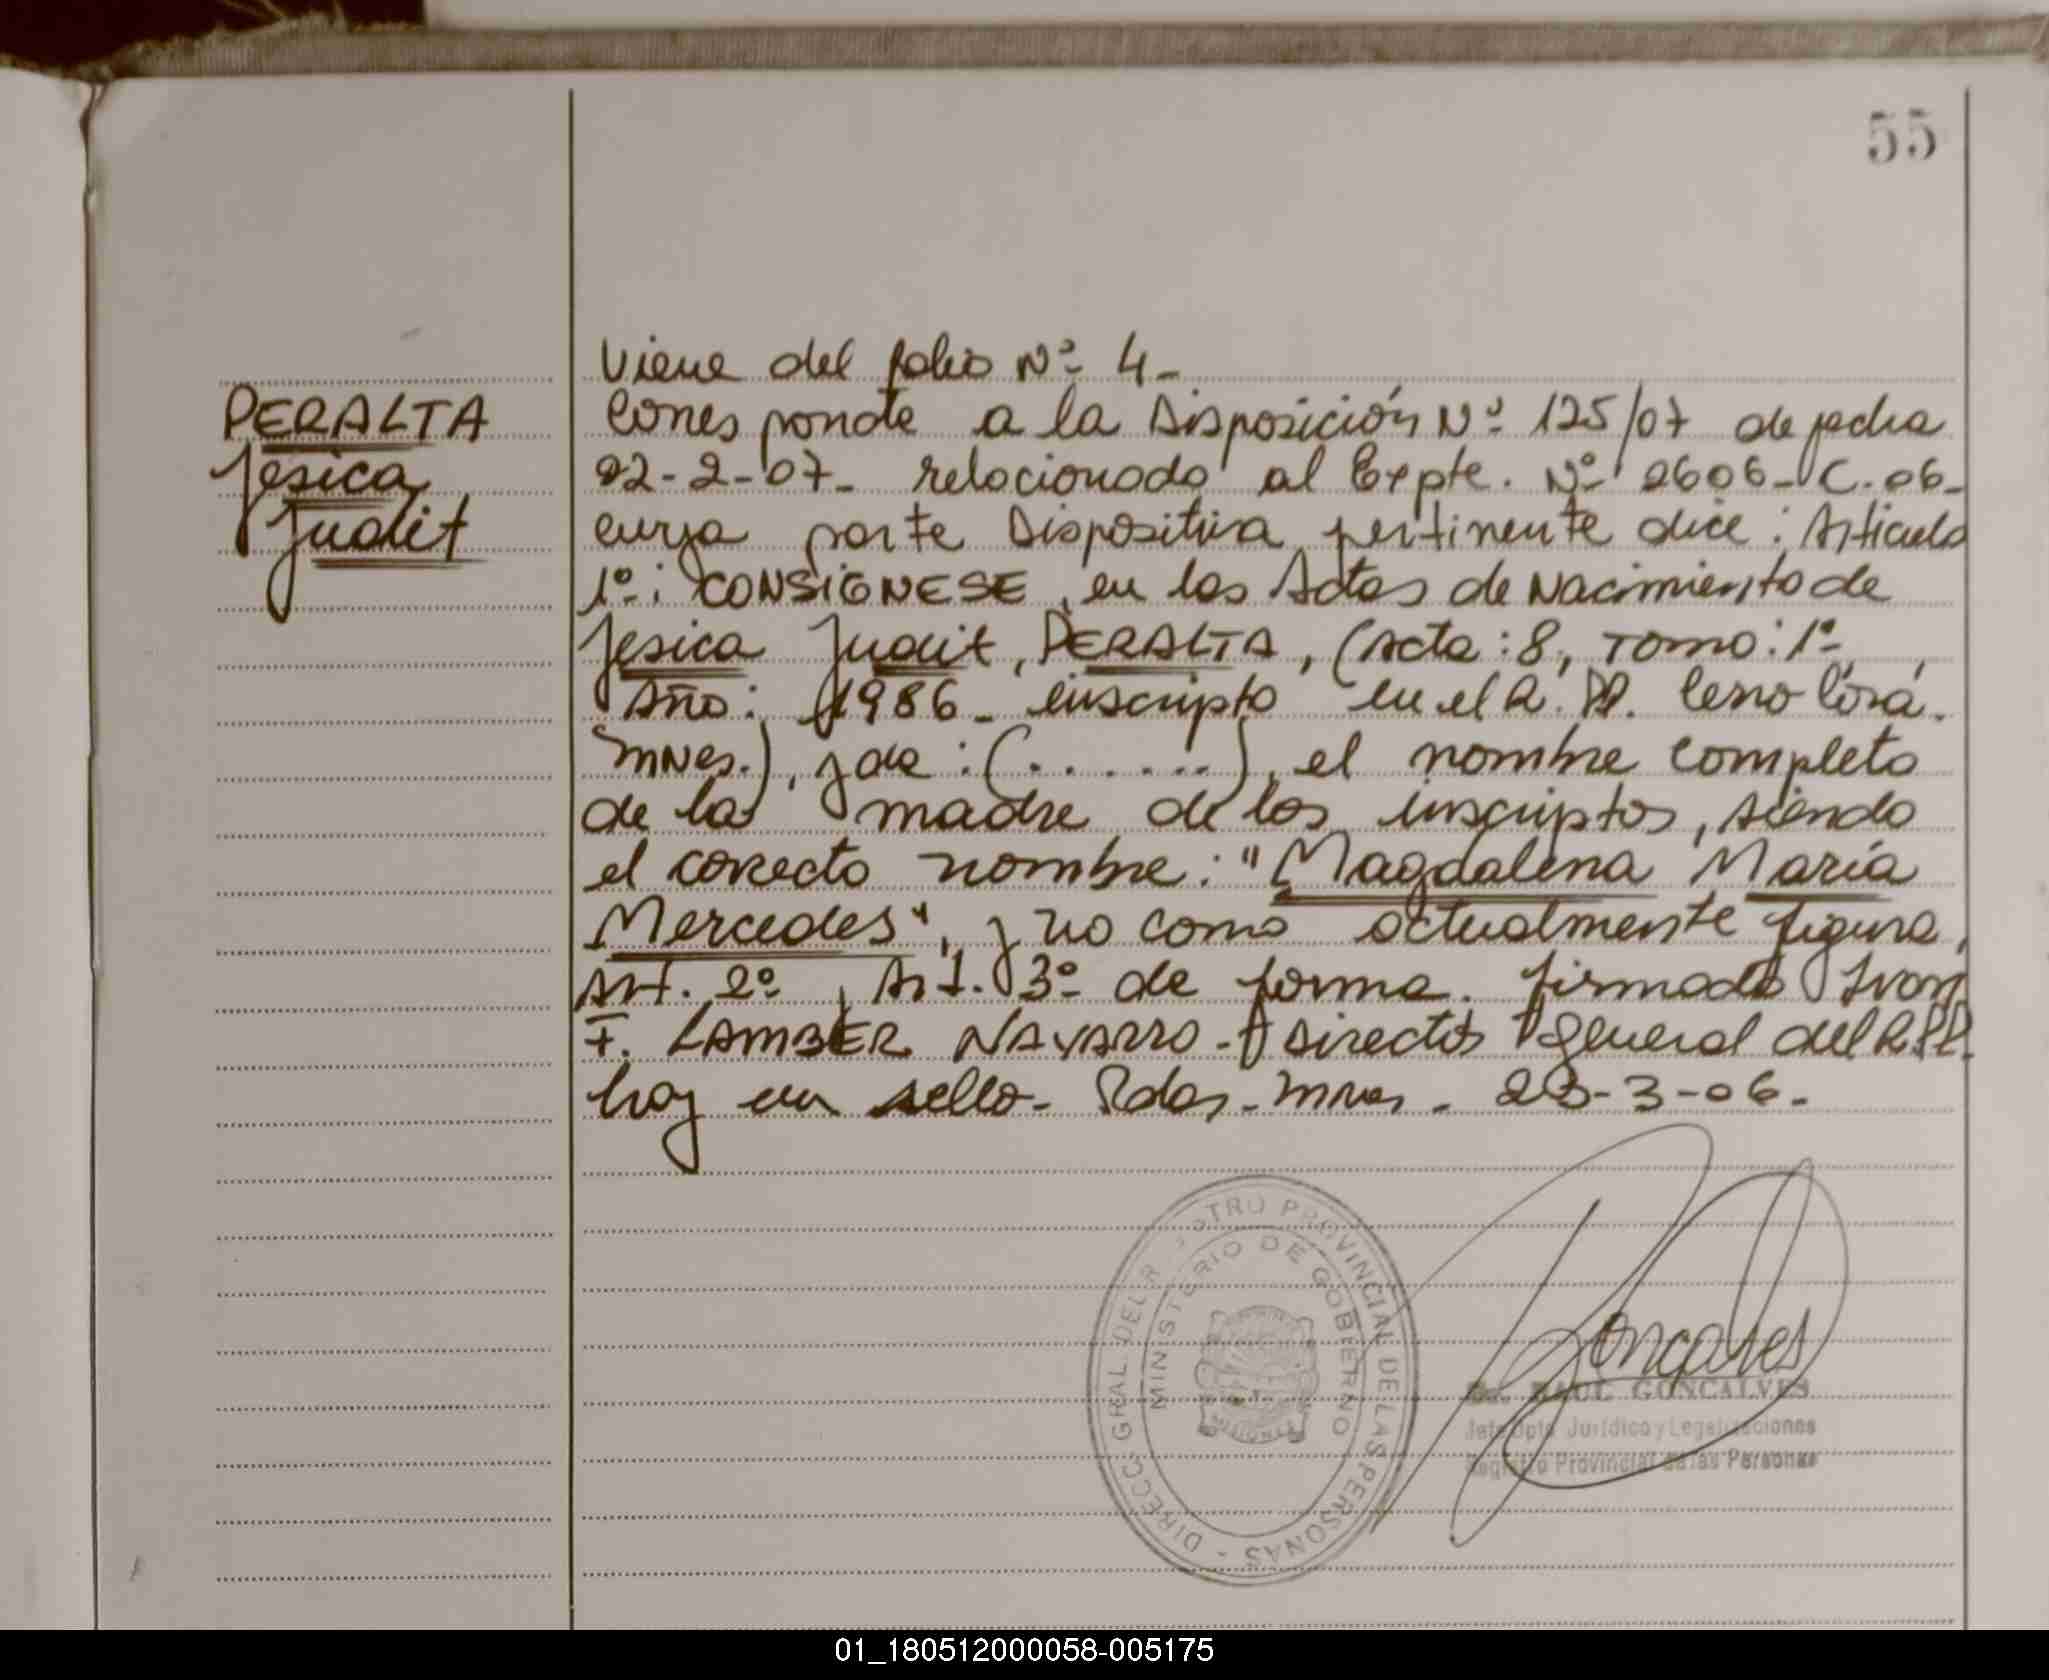 55
PERALTA
Jesica
Judit
Viene del folio Nº 4-
Corresponde a la Disposición Nº 125/07 de fecha
22-2-07- relacionado al Expte. Nº 2606-C-06-
cuya parte Dispositiva pertinente dice: Articulo
1º: CONSIGNESE, en las Actas de Nacimiento de
Jesica Judit, PERALTA, (Acta: 8, Tomo: 1º,
Año: 1986- inscripto en el R. PP. Cerro Corá.
Mnes.), y de: (.......), el nombre completo
de la madre de los inscriptos, siendo
el correcto nombre: "Magdalena María
Mercedes", y no como actualmente figura,
Art. 2º, Art. 3º de forma. firmado Ivon
F. LAMBER NAVARRO- Director General del R.PP.
hay un sello- Pdas-Mnes- 23-3-06-
DIRECC. GRAL DEL R STRO PROVINCIAL DE LAS PERSONAS -
MINISTERIO DE GOBIERNO
MISIONES
Goncalves
Dr. RAUL GONCALVES
Jefe Dpto Jurídico y Legalizaciones
Registro Provincial de las Personas
01_180512000058-005175